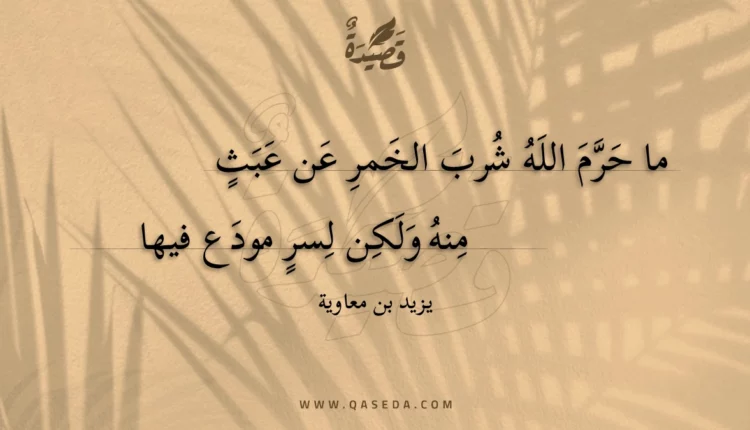 قَصِيْدَةٌ
ما حَرَّمَ اللَهُ شُربَ الخَمرِ عَن عَبَثٍ
مِنهُ وَلَكِن لِسرٍ مودَع فيها
يزيد بن معاوية
WWW.QASEDA.COM